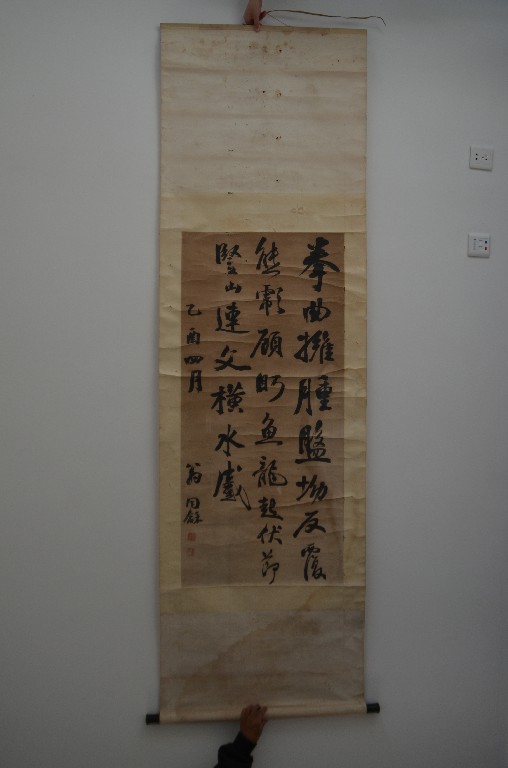 拳曲擁腫盤坳反覆
熊彪顧盼魚龍起伏節
豎山連文橫水蹙
乙酉四月 翁同龢